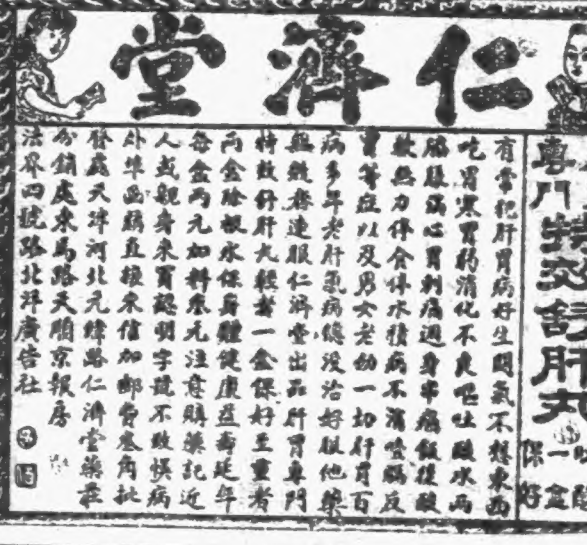 仁濟堂
專門特效舒肝丸
一盒
保好
有常犯肝胃病好生悶氣不想東西
吃胃寒胃弱消化不良嘔吐酸水兩
脇脹滿心胃刺痛週身串痛飯後酸
軟無力停食停水積病不消噎膈反
胃等症以及男女老幼一切肝胃百
病多年老肝氣病總沒治好服他藥
無效者速服仁濟堂出品肝胃專門
特效舒肝丸輕者一盒保好至重者
兩盒除根永保身體健康益壽延年
每盒兩元加料四元注意購藥記近
人或親身來買認明字號不致悞病
外埠函購直接來信加郵費叁角批
發處天津河北元緯路仁濟堂藥莊
分銷處東馬路天順京報房
法界四號路北洋廣告社